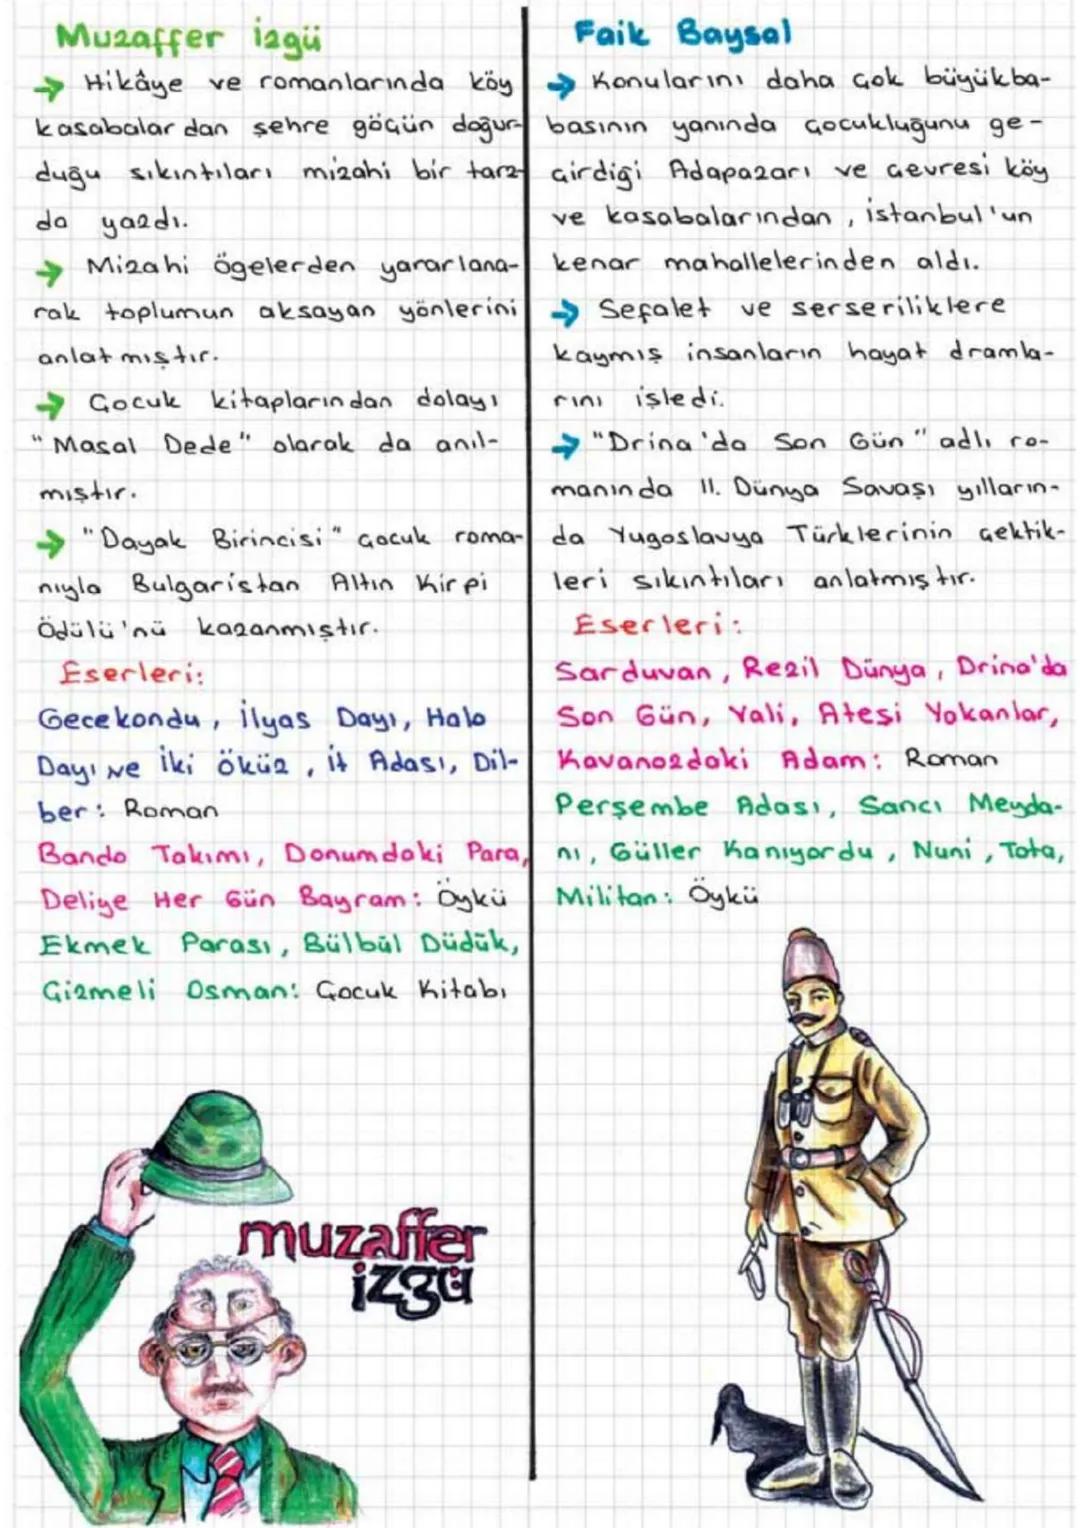 Muzaffer İzgü
→ Hikâye ve romanlarında köy
kasabalardan şehre göçün doğur-
duğu sıkıntıları mizahi bir tarz-
da yazdı.
→ Mizahi ögelerden yararlana-
rak toplumun aksayan yönlerini
anlatmıştır.
→ Çocuk kitaplarından dolayı
"Masal Dede" olarak da anıl-
mıştır.
→ "Dayak Birincisi" çocuk roma-
nıyla Bulgaristan Altın Kirpi
Ödülü'nü kazanmıştır.
Eserleri:
Gecekondu, İlyas Dayı, Halo
Dayı ve İki Öküz, İt Adası, Dil-
ber: Roman
Bando Takımı, Donumdaki Para,
Deliye Her Gün Bayram: Öykü
Ekmek Parası, Bülbül Düdük,
Çizmeli Osman: Çocuk Kitabı
muzaffer
izgü
Faik Baysal
→ Konularını daha çok büyükba-
basının yanında çocukluğunu ge-
çirdiği Adapazarı ve çevresi köy
ve kasabalarından, İstanbul'un
kenar mahallelerinden aldı.
→ Sefalet ve serseriliklere
kaymış insanların hayat dramla-
rını işledi.
→ "Drina'da Son Gün" adlı ro-
manında II. Dünya Savaşı yılların-
da Yugoslavya Türklerinin çektik-
leri sıkıntıları anlatmıştır.
Eserleri:
Sarduvan, Rezil Dünya, Drina'da
Son Gün, Vali, Ateşi Yakanlar,
Kavanozdaki Adam: Roman
Perşembe Adası, Sancı Meyda-
nı, Güller Kanıyordu, Nuni, Tota,
Militan: Öykü